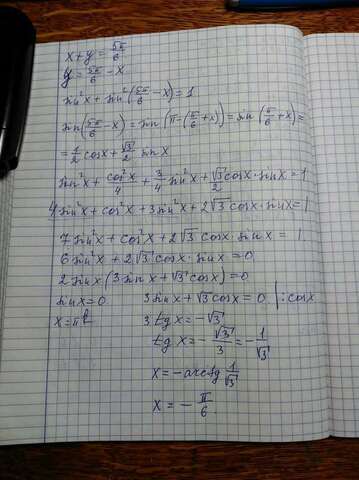 x + y = 5π/6
y = 5π/6 - x
sin²x + sin²(5π/6 - x) = 1
sin(5π/6 - x) = sin(π - (π/6 + x)) = sin(π/6 + x) =
= 1/2 cosx + √3/2 sinx
sin²x + cos²x/4 + 3/4 sin²x + √3/2 cosx·sinx = 1
4sin²x + cos²x + 3sin²x + 2√3 cosx·sinx = 1
7sin²x + cos²x + 2√3 cosx·sinx = 1
6sin²x + 2√3 cosx·sinx = 0
2sinx(3sinx + √3 cosx) = 0
sinx = 0 3sinx + √3 cosx = 0 | :cosx
x = πk 3tgx = -√3
tgx = -√3/3 = -1/√3
x = -arctg 1/√3
x = -π/6